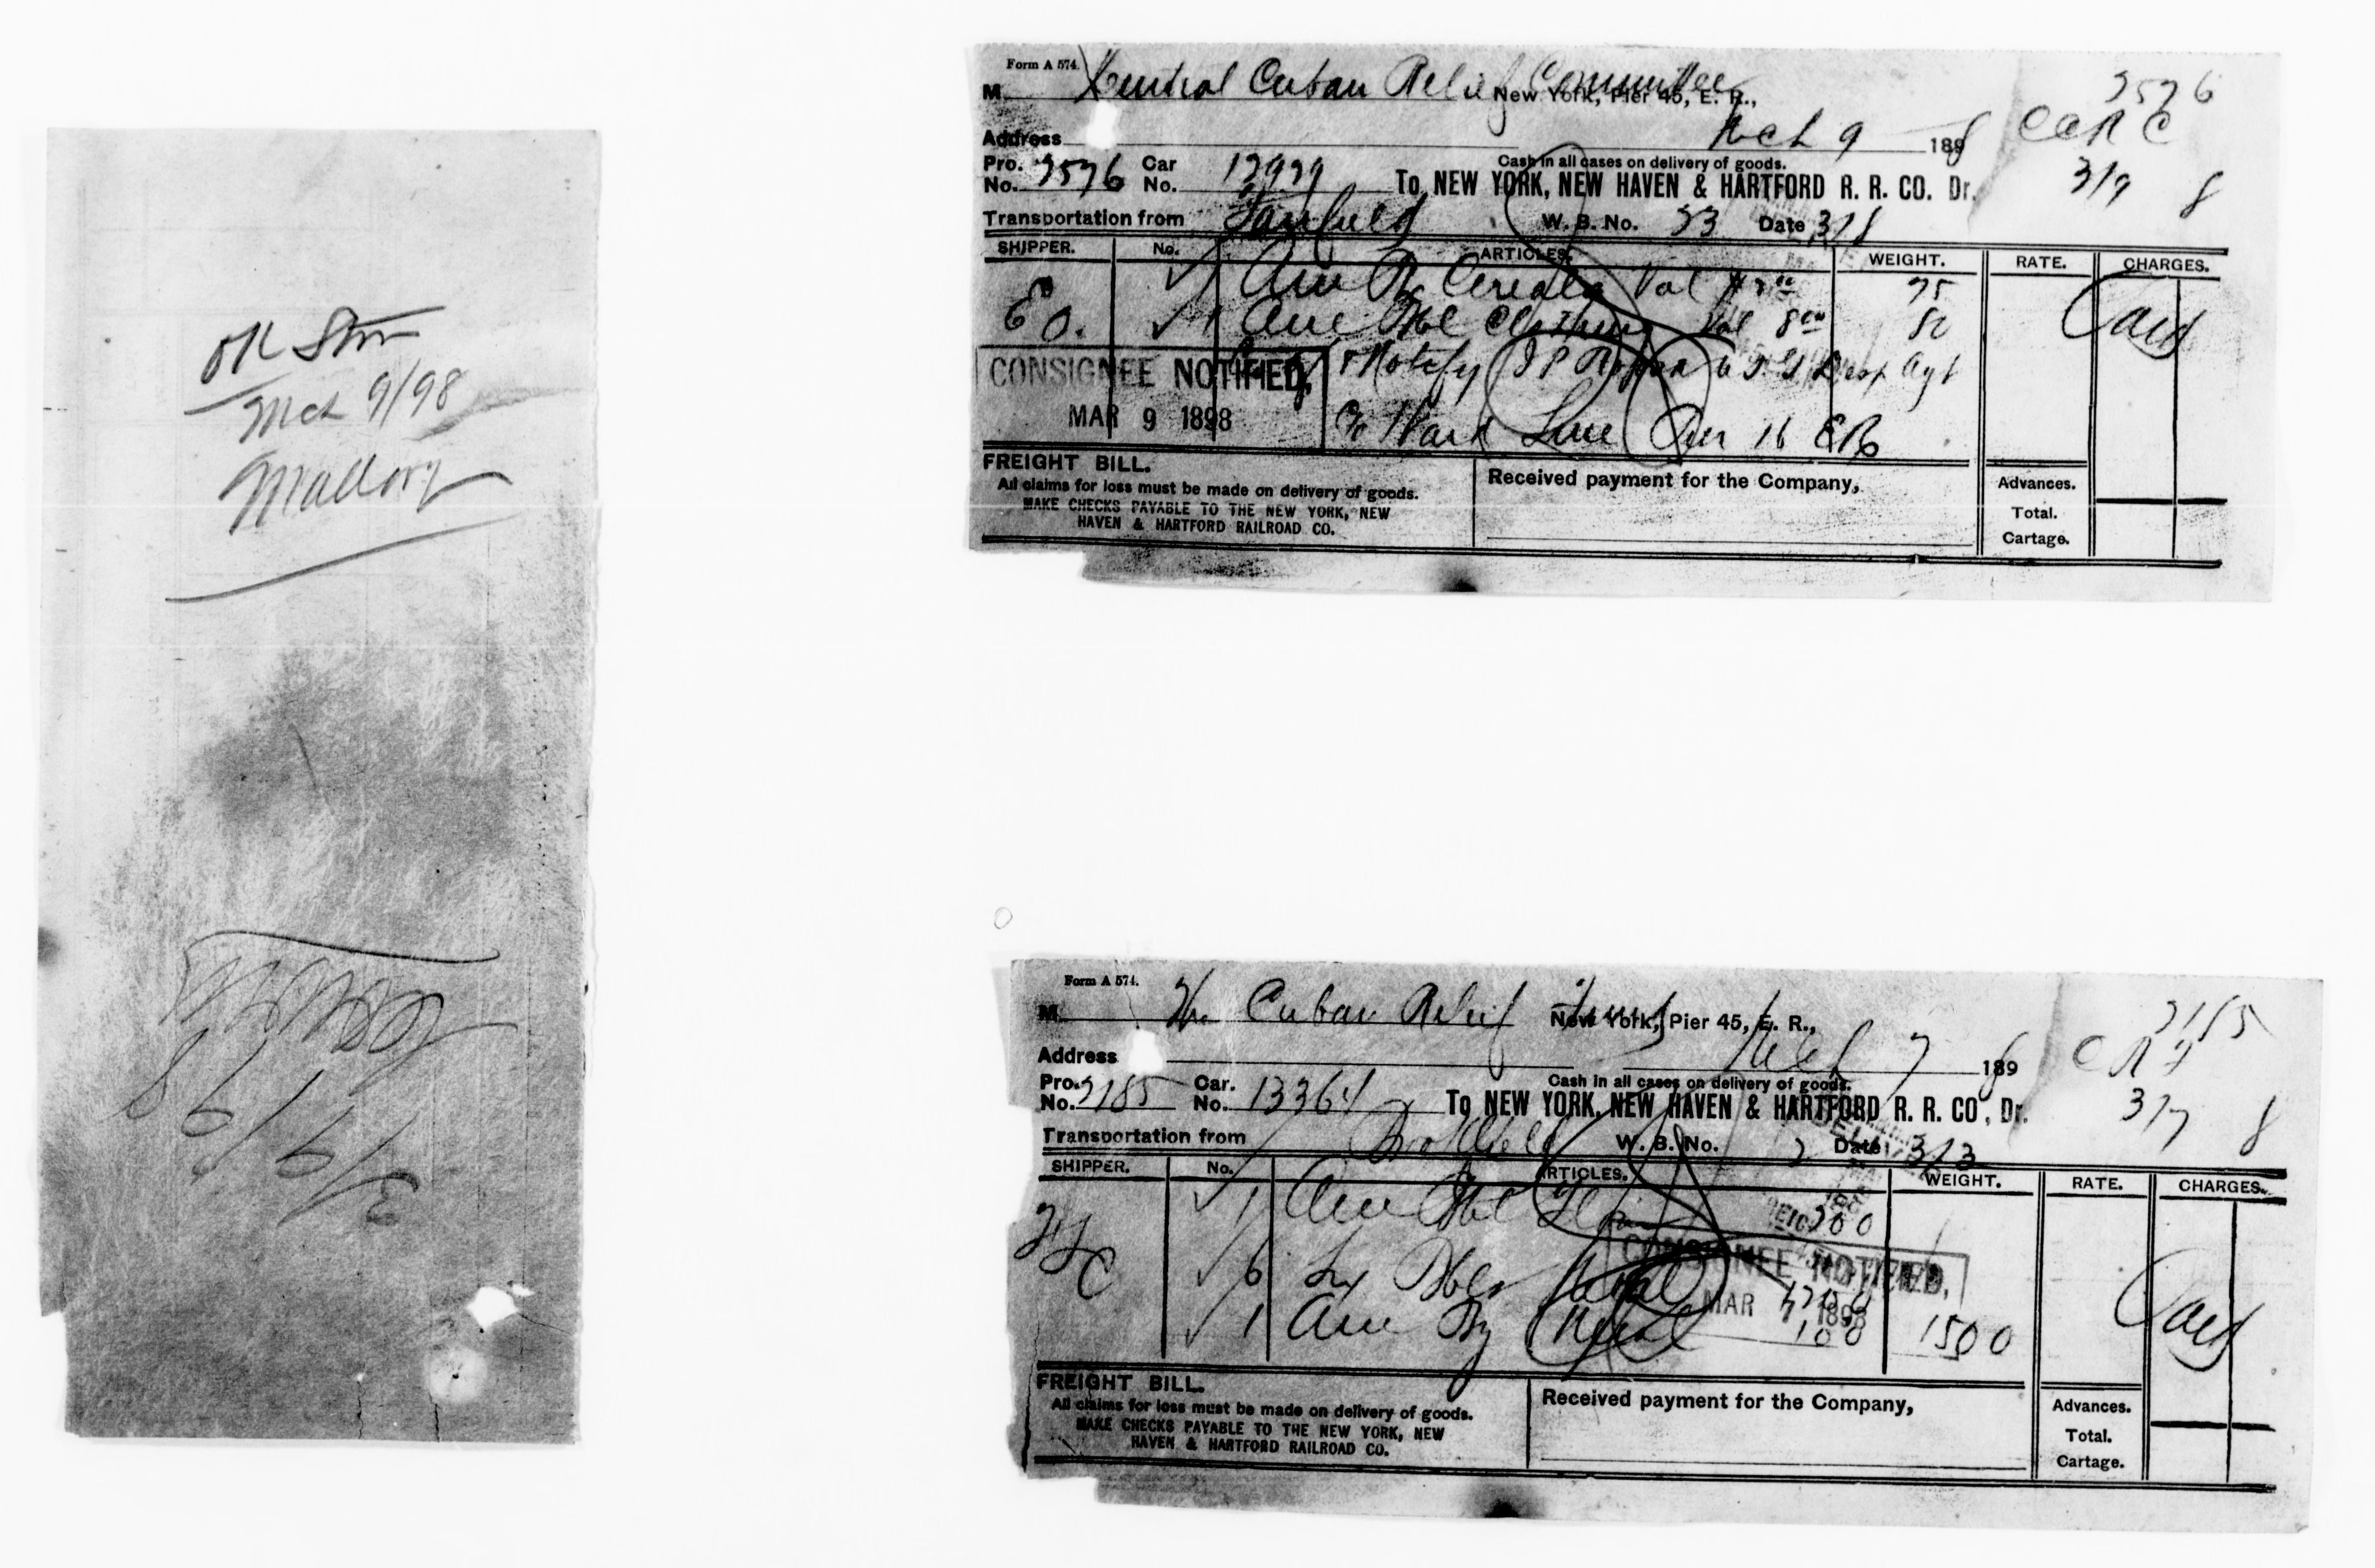 OK Stm
Mch 9/98
Mallory
3/9/98
Form A 574.
M Central Cuban Relief Committee
New York, Pier 45, E. R.,
3576
Address
Mch 9 1898
Pro. No. 3576 Car No. 12999
Cash in all cases on delivery of goods.
To NEW YORK, NEW HAVEN & HARTFORD R. R. CO. Dr.
3/9 8
Transportation from Fairfield W. B. No. 53 Date 3/8
SHIPPER. No. ARTICLES. WEIGHT. RATE. CHARGES.
1 One Cereals Val 75
Eo. 1 One Bbl Clothing Val 8 00 50
Paid
CONSIGNEE NOTIFIED,
MAR 9 1898
Notify Agt
c/o Ward Line Pier 16 ER
FREIGHT BILL.
All claims for loss must be made on delivery of goods.
MAKE CHECKS PAYABLE TO THE NEW YORK, NEW
HAVEN & HARTFORD RAILROAD CO.
Received payment for the Company,
Advances.
Total.
Cartage.
Form A 574.
M The Cuban Relief Fund
New York, Pier 45, E. R.,
3185
Address
Mch 7 1898
Pro. No. 3185 Car. No. 13364
Cash in all cases on delivery of goods.
To NEW YORK, NEW HAVEN & HARTFORD R. R. CO, Dr.
3/7 8
Transportation from W. B. No. 2 Date 3/3
SHIPPER. No. ARTICLES. WEIGHT. RATE. CHARGES.
1 One Bbl 200
6 Six Bbls Meal
1 One Meal 100 1500
Paid
CONSIGNEE NOTIFIED,
MAR 7 1898
FREIGHT BILL.
All claims for loss must be made on delivery of goods.
MAKE CHECKS PAYABLE TO THE NEW YORK, NEW
HAVEN & HARTFORD RAILROAD CO.
Received payment for the Company,
Advances.
Total.
Cartage.